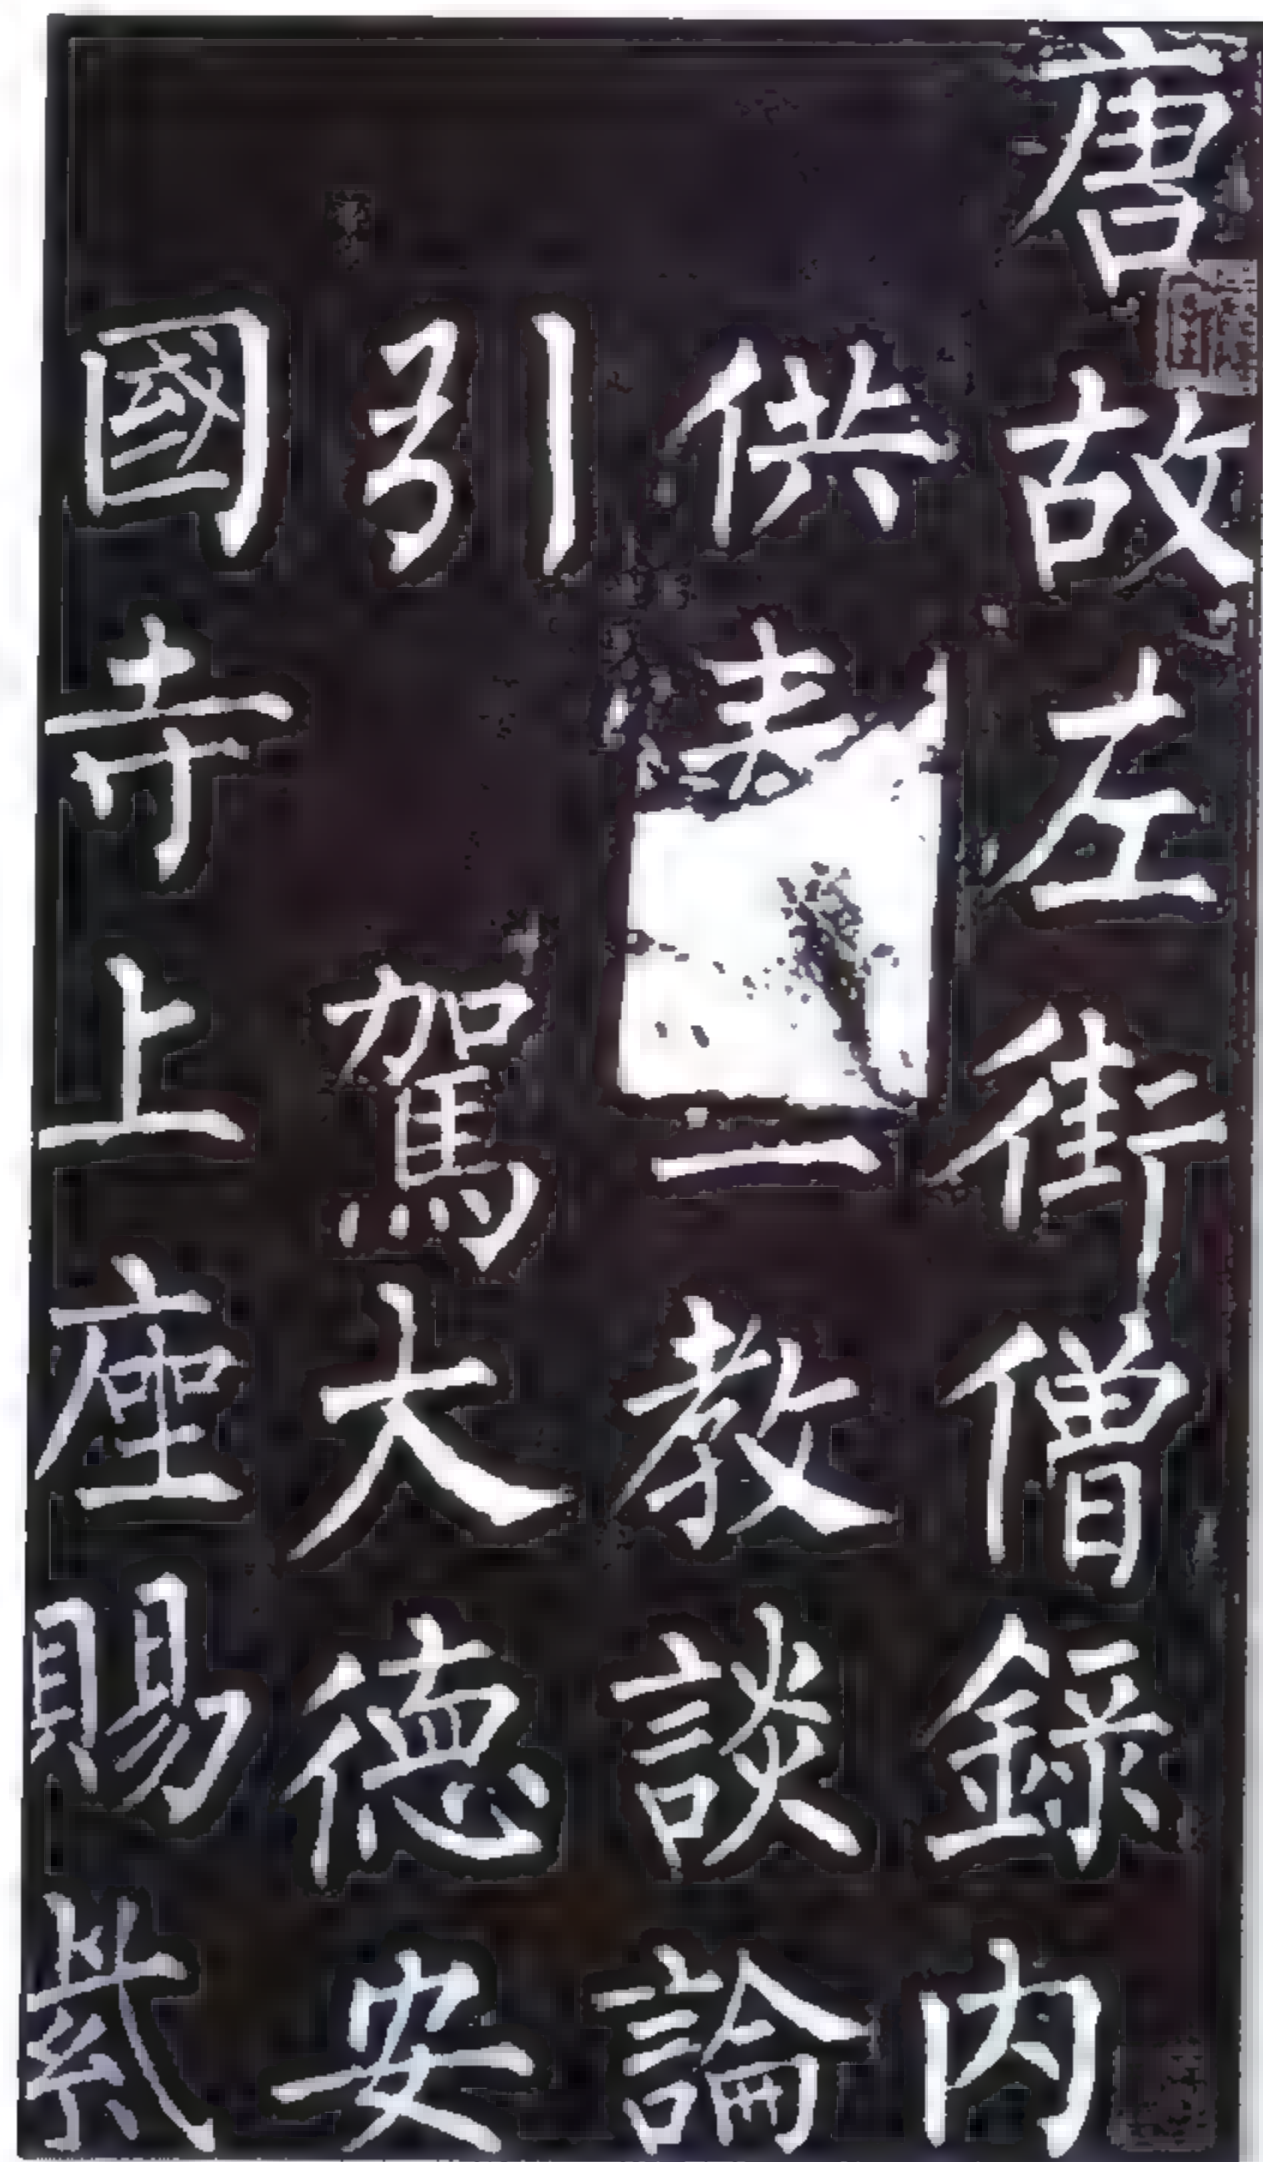 唐故左街僧錄內
供表一教談論
引駕大德安
國寺上座賜紫